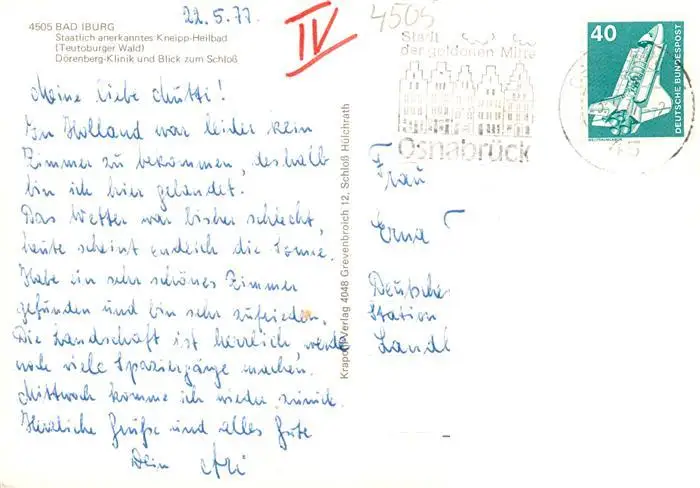 22.5.77.
4505 BAD IBURG
Staatlich anerkanntes Kneipp-Heilbad
(Teutoburger Wald)
Dörenberg-Klinik und Blick zum Schloß
IV
4505
Meine liebe Mutti!
In Holland war leider kein
Zimmer zu bekommen, deshalb
bin ich hier gelandet.
Das Wetter war bisher schlecht,
heute scheint endlich die Sonne.
Habe ein sehr schönes Zimmer
gefunden und bin sehr zufrieden.
Die Landschaft ist herrlich, werde
noch viele Spaziergänge machen.
Mittwoch komme ich wieder zurück.
Herzliche Grüße und alles Gute
Dein
Krapohl-Verlag 4048 Grevenbroich 12, Schloß Hülchrath
Stadt
der goldenen Mitte
Osnabrück
40
DEUTSCHE BUNDESPOST
Frau
Erna
Deutsche
Station
Landl